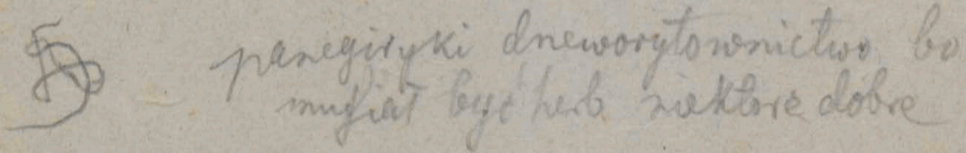 panegiryki dneworytownictwo bo
musiał być herb niektóre dobre